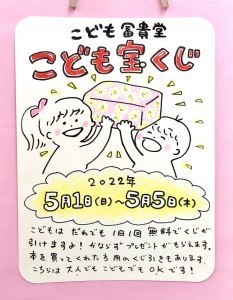 こども冨貴堂
こども宝くじ
2022年
5月1日(日)〜5月5日(木)
こどもは だれでも 1日1回 無料でくじが
引けますよ! かならずプレゼントがもらえます。
本を買ってくれた方用のくじ引きもあります。
こちらは大人でもこどもでもOKです!